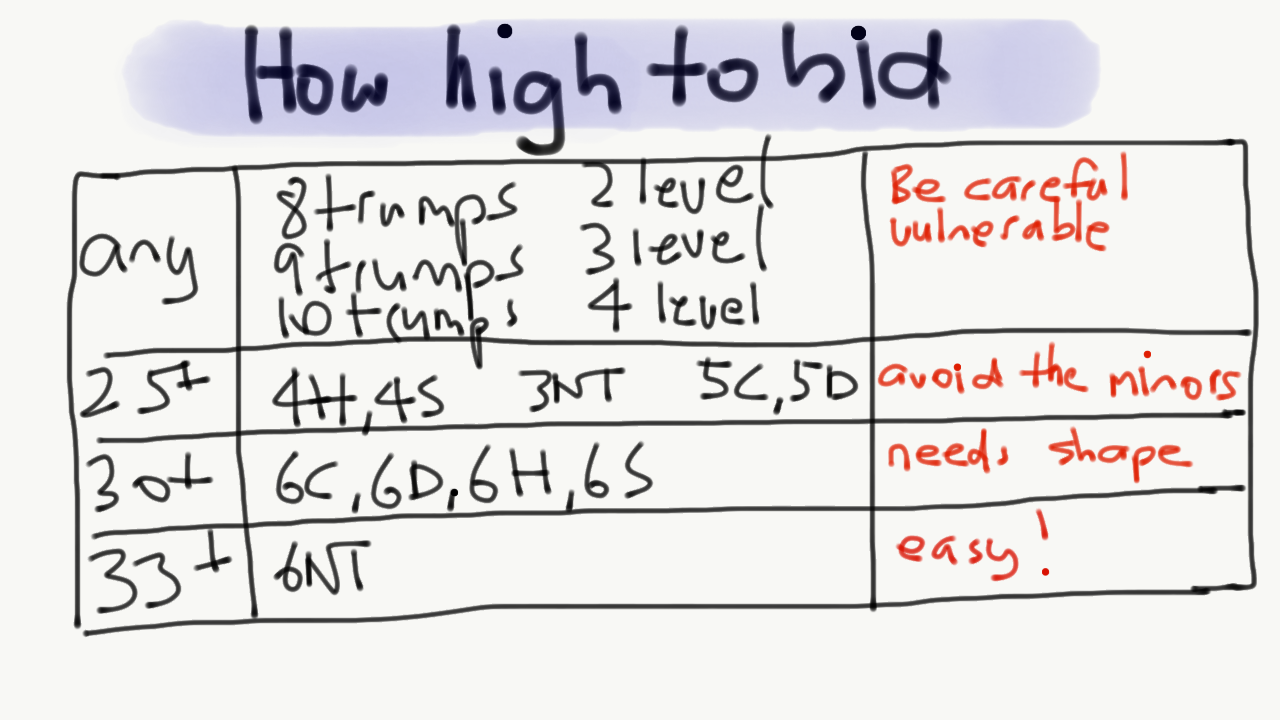 How high to bid
any
8 trumps 2 level
9 trumps 3 level
10 trumps 4 level
Be careful
vulnerable
25+ 4H,4S 3NT 5C,5D avoid the minors
30+ 6C,6D,6H,6S needs shape
33+ 6NT easy!